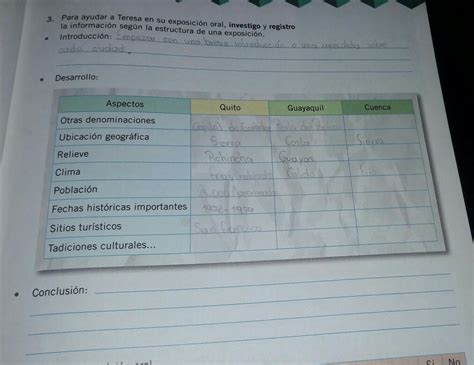 3. Para ayudar a Teresa en su exposición oral, investigo y registro
la información según la estructura de una exposición.
• Introducción: Empezar con una breve introducción o una anecdota sobre
cada ciudad
• Desarrollo:
Aspectos Quito Guayaquil Cuenca
Otras denominaciones Capital de Ecuador Perla del
Ubicación geográfica Sierra Costa Sierra
Relieve Pichincha Guayas
Clima Calido Frio
Población
Fechas históricas importantes
Sitios turísticos San Francisco
Tadiciones culturales...
• Conclusión:
Si No